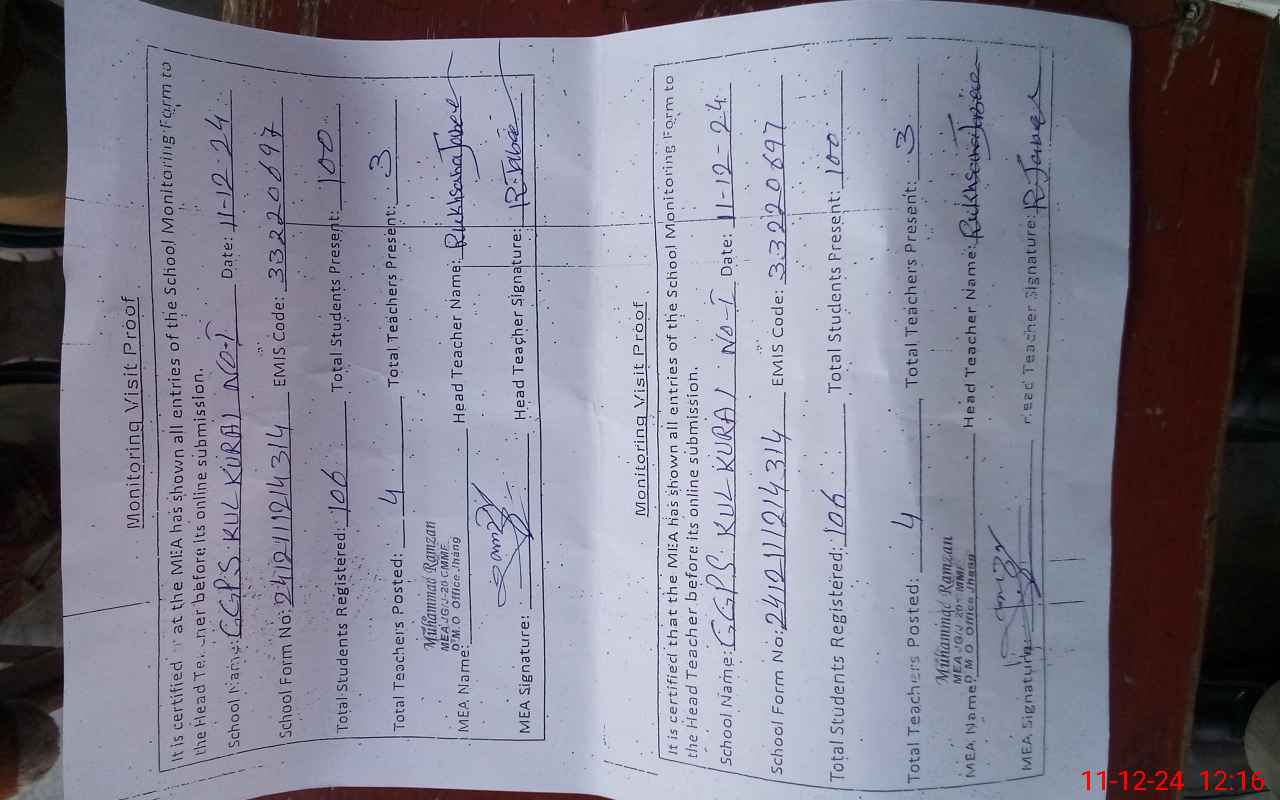 Monitoring Visit Proof
It is certified at the MEA has shown all entries of the School Monitoring Form to
the Head before its online submission.
School Name: GGPS KUL KURAI NO-I Date: 11-12-24
School Form No: 241211214314 EMIS Code: 33220697
Total Students Registered: 106 Total Students Present: 100
Total Teachers Posted: 4 Total Teachers Present: 3
Muhammad Ramzan
MEA JG/J-20 CMMF
D.M.O Office Jhang
MEA Name: Head Teacher Name: Rukhsana
MEA Signature: Head Teacher Signature:
Monitoring Visit Proof
It is certified that the MEA has shown all entries of the School Monitoring Form to
the Head Teacher before its online submission.
School Name: GGPS KUL KURAI NO-I Date: 11-12-24
School Form No: 241211214314 EMIS Code: 33220697
Total Students Registered: 106 Total Students Present: 100
Total Teachers Posted: 4 Total Teachers Present: 3
Muhammad Ramzan
MEA JG/J-20 CMMF
D M O Office Jhang
MEA Name: Head Teacher Name: Rukhsana
MEA Signature: Head Teacher Signature:
11-12-24 12:16